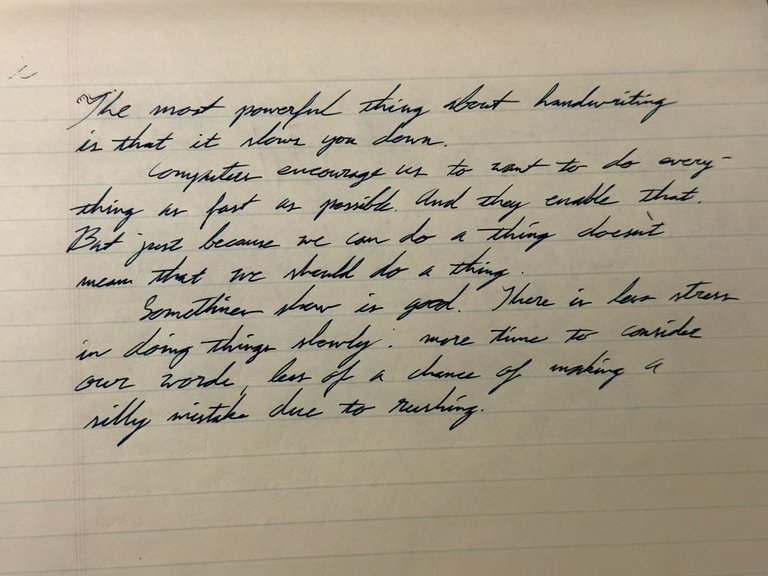 The most powerful thing about handwriting
is that it slows you down.
Computers encourage us to want to do every-
thing as fast as possible. And they enable that.
But just because we can do a thing doesn't
mean that we should do a thing.
Sometimes slow is good. There is less stress
in doing things slowly: more time to consider
our words, less of a chance of making a
silly mistake due to rushing.